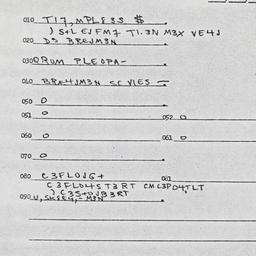 010 TI7, MPLESS $
) S+L EJFM7 TI.3N M3X VE4J
020 DS BREJM3N
030 QRUM PLEOPA-
040 BRE4JM3N SC VIES =
050 O
051 O 052 O
060 O 061 O
070 O
080 C3FLOJG+ 081
C3FLO4S T3RT CMC3PO4TLT
090 U, SKEEG, = M3N